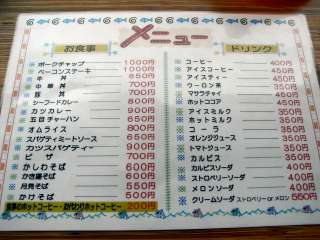 メニュー
お食事
ポークチャップ 1000円
ベーコンステーキ 1000円
牛丼 650円
中華丼 700円
豚丼 700円
シーフードカレー 800円
カツカレー 900円
五目チャーハン 650円
オムライス 800円
スパゲティミートソース 650円
カツスパゲティー 900円
ピザ 700円
かしわそば 600円
かき揚そば 600円
月見そば 550円
かけそば 500円
食事とのホットコーヒー・おかわりホットコーヒー 200円
ドリンク
コーヒー 400円
アイスコーヒー 450円
アイスティー 450円
ウーロン茶 350円
マサラチャイ 450円
ホットココア 450円
アイスミルク 350円
ホットミルク 350円
コーラ 350円
オレンジジュース 350円
トマトジュース 350円
カルピス 350円
カルピスソーダ 450円
ストロベリーソーダ 450円
メロンソーダ 450円
クリームソーダ ストロベリー or メロン 550円